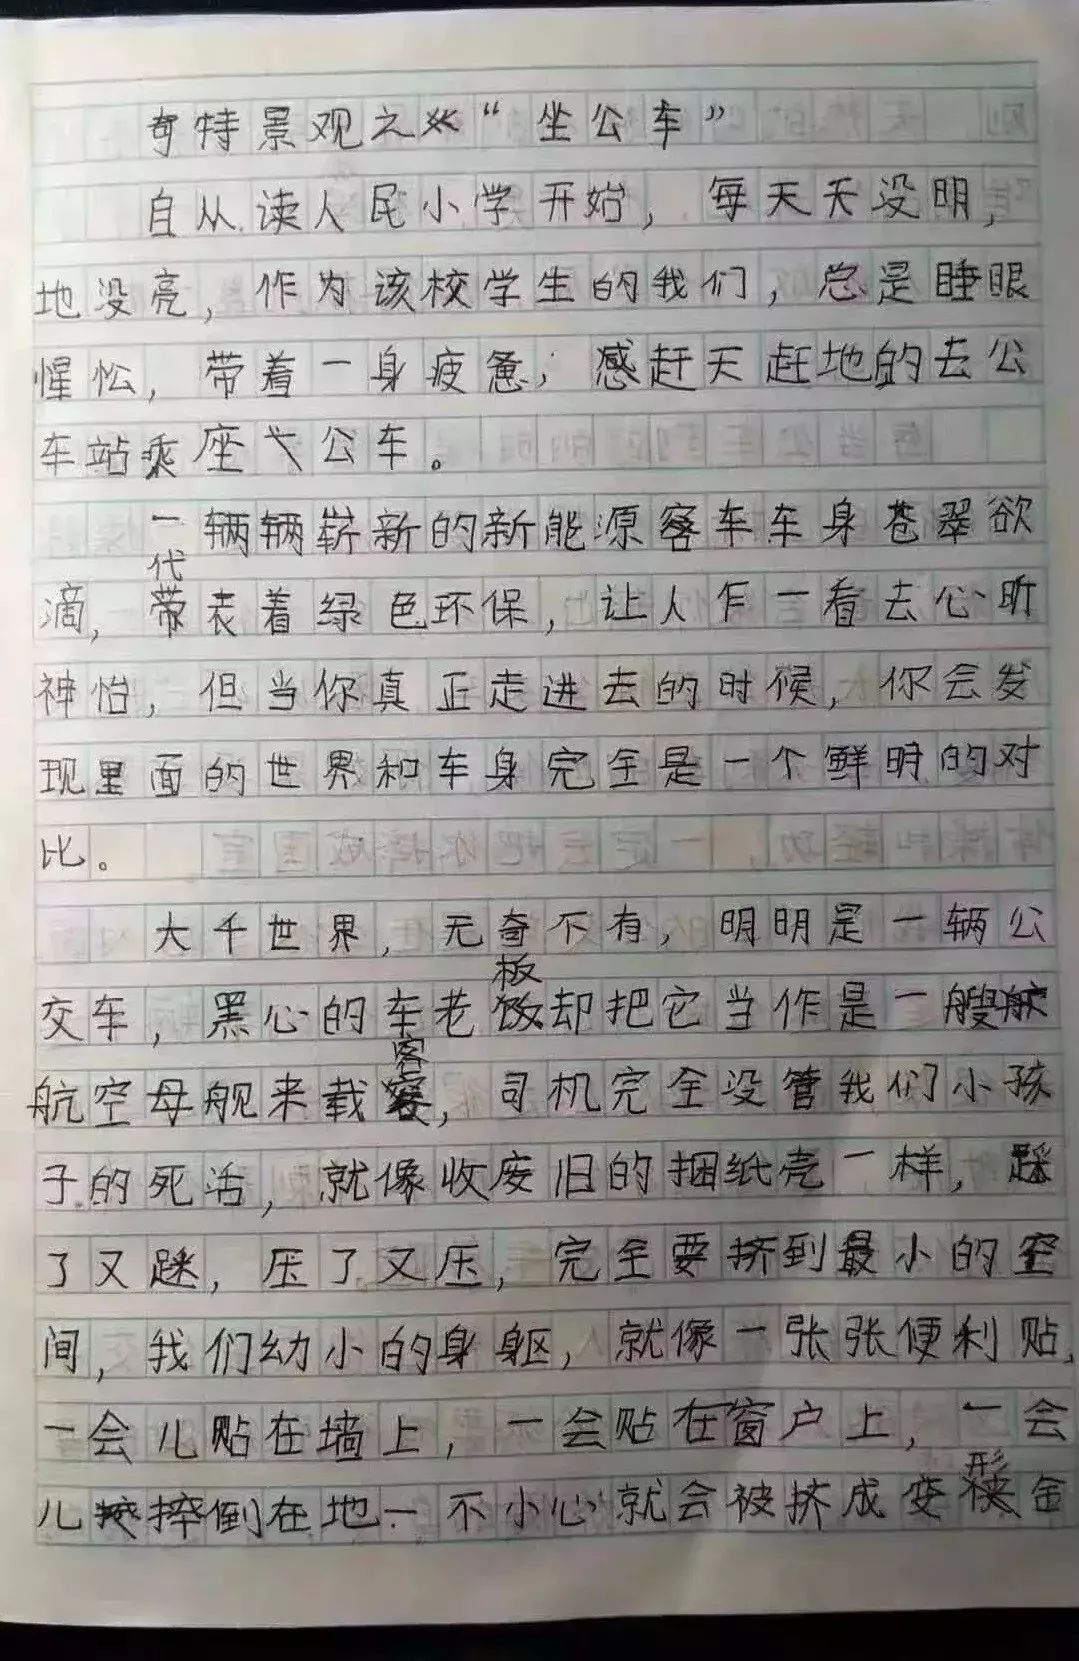 奇特景观之“坐公车”
自从读人民小学开始，每天天没明，
地没亮，作为该校学生的我们，总是睡眼
惺忪，带着一身疲惫，感赶天赶地的去公
车站乘座公车。
一辆辆崭新的新能源客车车身苍翠欲
滴，代表着绿色环保，让人乍一看去心昕
神怡，但当你真正走进去的时候，你会发
现里面的世界和车身完全是一个鲜明的对
比。
大千世界，无奇不有，明明是一辆公
交车，黑心的车老板却把它当作是一艘
航空母舰来载客，司机完全没管我们小孩
子的死活，就像收废旧的捆纸壳一样，踩
了又踩，压了又压，完全要挤到最小的空
间，我们幼小的身躯，就像一张张便利贴，
一会儿贴在墙上，一会贴在窗户上，一会
儿摔倒在地一不小心就会被挤成变形金